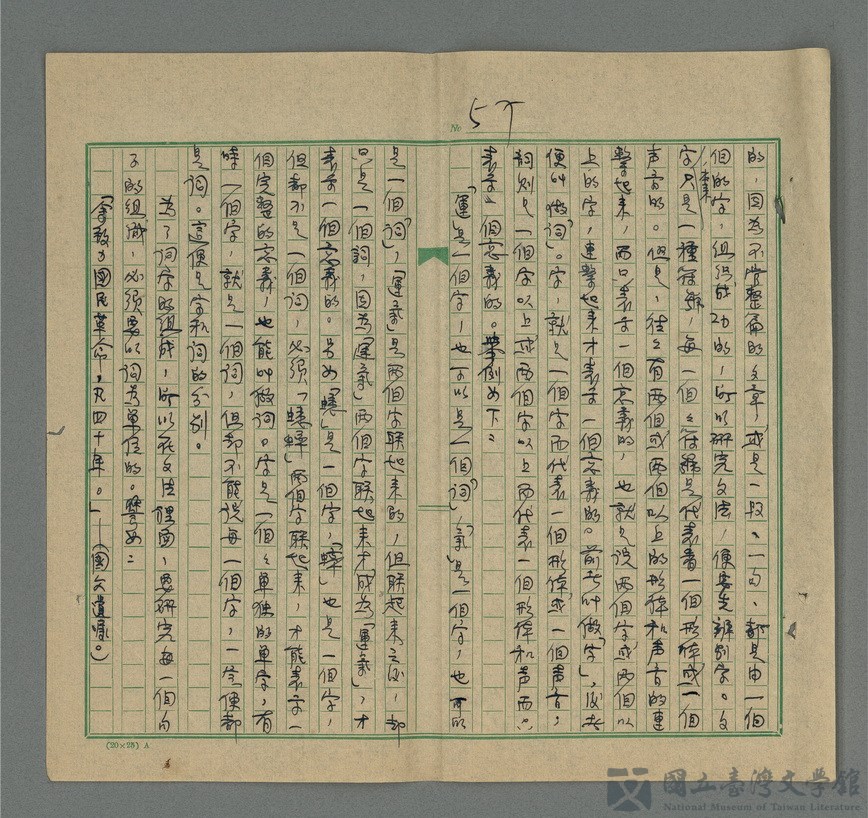 No 57
的,因為不管整篇的文章,或是一段、一句,都是由一個
個的字,組織成功的,所以研究文法,便要先辨別字。文
字本來只是一種符號,每一個文符號是代表著一個形体或一個
声音的。但是,往々有兩個或兩個以上的形体和声音的連
繫起來,而只表示一個意義的,也就是說兩個字或兩個以
上的字,連繫起來才表示一個意義的。前者叫做「字」,後者
便叫做「詞」。字,就是一個字而代表一個形体或一個声音,
詞則是一個字以上或兩個字以上而代表一個形体和声而只
表示一個意義的。舉例如下:
「運」是一個字,也可以是一個「詞」,「氣」是一個字,也可以
是一個「詞」,「運氣」是兩個字联起來的,但联起來之後,却
只是一個詞,因為「運氣」兩個字联起來才成為「運氣」,才
表示一個意義的。另如「蟋」是一個字,「蟀」也是一個字,
但却不是一個詞,必須「蟋蟀」兩個字联起來,才能表示一
個完整的意義,也能叫做詞。字是一個々單独的單字,有
時一個字,就是一個詞,但却不能說每一個字,一定便都
是詞。這便是字和詞的分別。
為了詞字的組成,所以在文法裡面,要研究每一個句
子的組成,必須要以詞為單位的。譬如:
「余致力國民革命,凡四十年。」——(國父遺囑。)
(20×25) A
國立臺灣文學館
National Museum of Taiwan Literature